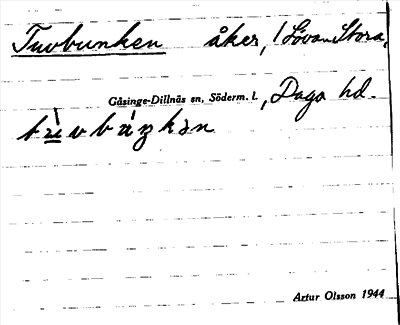 Tuvbunken åker, Löva Stora,
Gåsinge-Dillnäs sn, Söderm. l., Daga hd.
Artur Olsson 1944